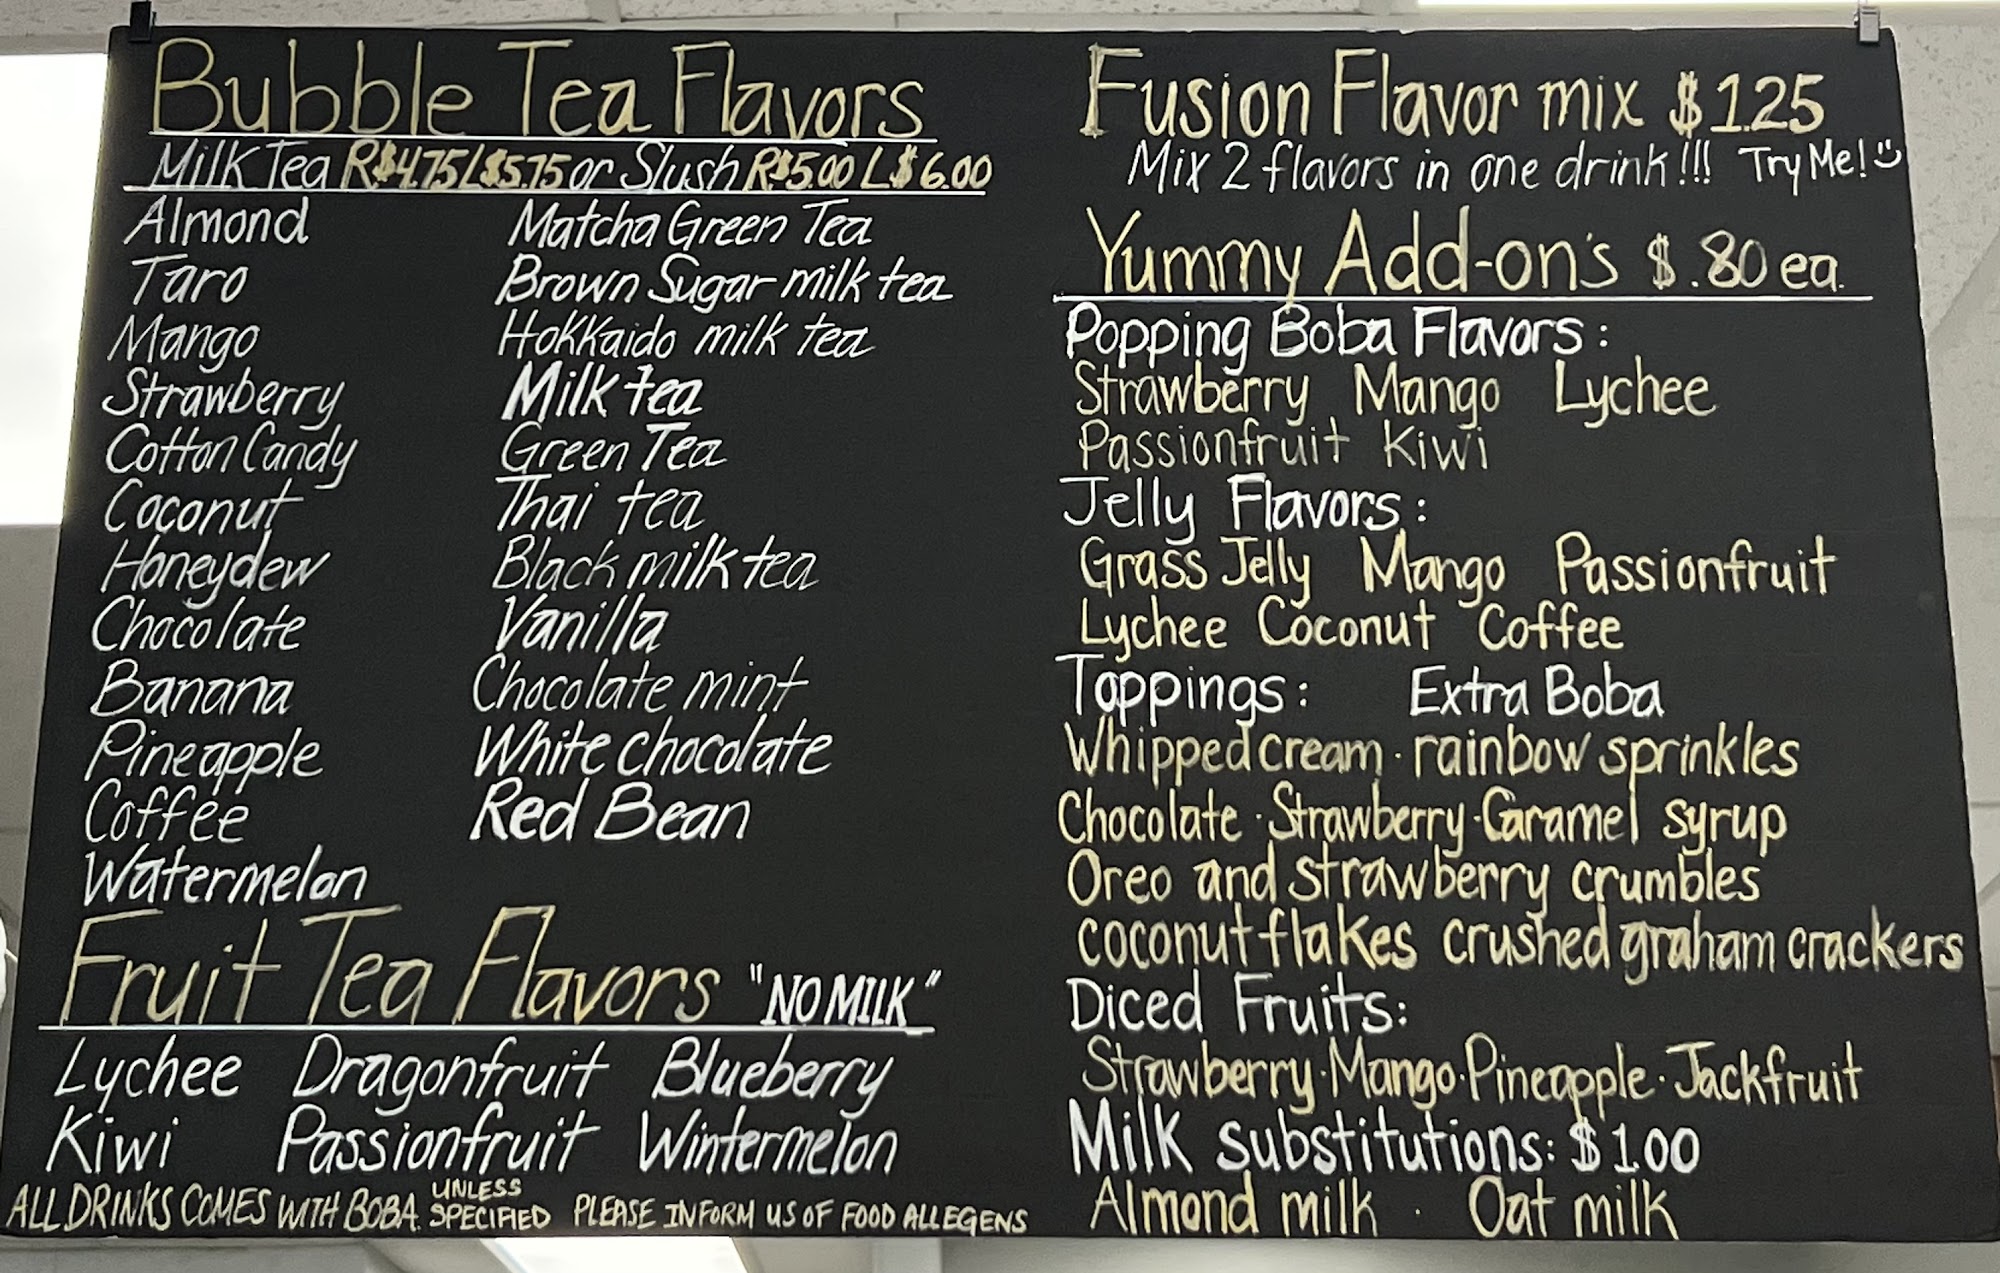 Bubble Tea Flavors
Milk Tea R$4.75 L$5.75 or Slush R$5.00 L$6.00
Almond
Taro
Mango
Strawberry
Cotton Candy
Coconut
Honeydew
Chocolate
Banana
Pineapple
Coffee
Watermelon
Matcha Green Tea
Brown Sugar milk tea
Hokkaido milk tea
Milk tea
Green Tea
Thai tea
Black milk tea
Vanilla
Chocolate mint
White chocolate
Red Bean
Fruit Tea Flavors "NO MILK"
Lychee Dragonfruit Blueberry
Kiwi Passionfruit Wintermelon
ALL DRINKS COMES WITH BOBA UNLESS SPECIFIED PLEASE INFORM US OF FOOD ALLEGENS
Fusion Flavor mix $1.25
Mix 2 flavors in one drink!!! Try Me!
Yummy Add-on's $.80 ea.
Popping Boba Flavors:
Strawberry Mango Lychee
Passionfruit Kiwi
Jelly Flavors:
Grass Jelly Mango Passionfruit
Lychee Coconut Coffee
Toppings: Extra Boba
Whipped cream · rainbow sprinkles
Chocolate · Strawberry · Caramel syrup
Oreo and strawberry crumbles
coconut flakes crushed graham crackers
Diced Fruits:
Strawberry · Mango · Pineapple · Jackfruit
Milk substitutions: $1.00
Almond milk · Oat milk